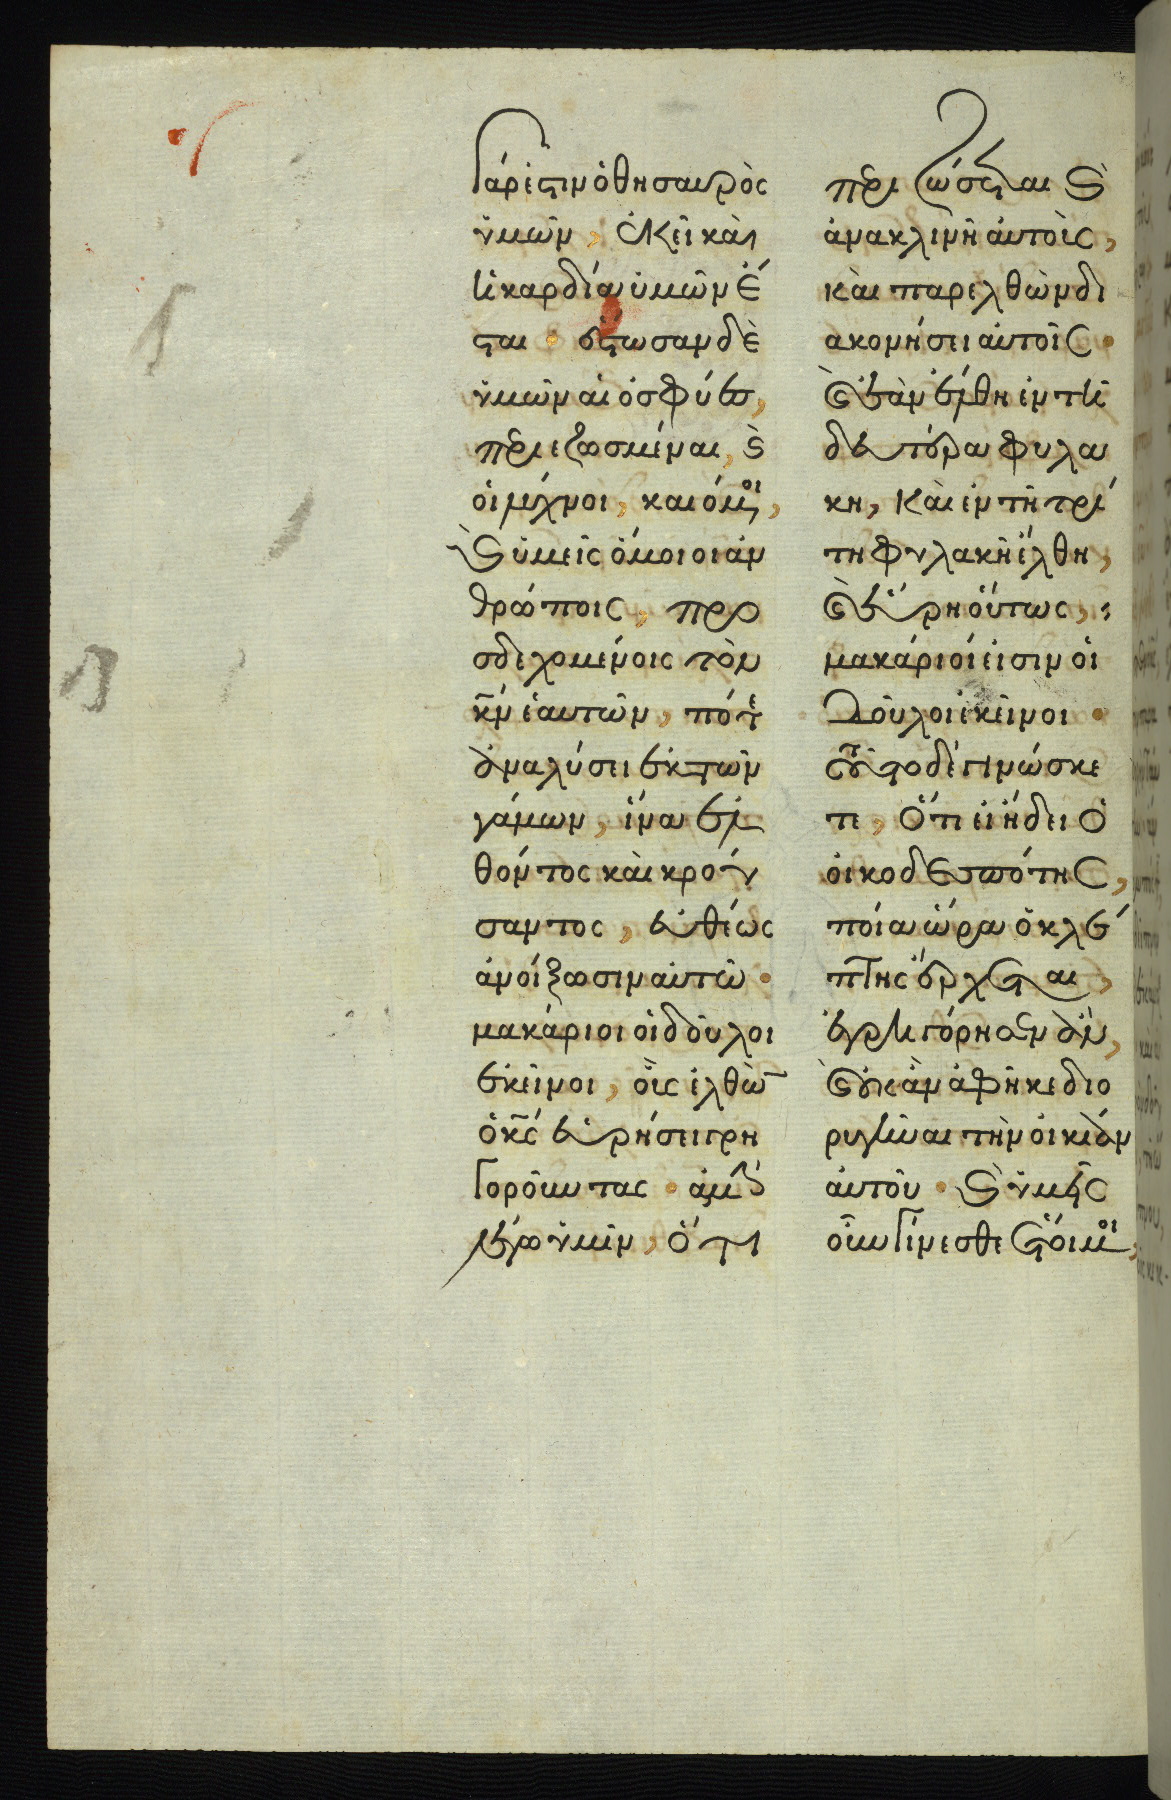 γάρ ἐστιν ὁ θησαυρὸς
ὑμῶν, ἐκεῖ καὶ
ἡ καρδία ὑμῶν ἔ
σται · ἔστωσαν δὲ
ὑμῶν αἱ ὀσφύες,
περιεζωσμέναι, ϗ
οἱ λύχνοι, καιόμενοι,
ϗ ὑμεῖς ὅμοιοι ἀν
θρώποις, προ
σδεχομένοις τὸν
κν ἑαυτῶν, πότε
ἀναλύσει ἐκ τῶν
γάμων, ἵνα ἐλ
θόντος καὶ κρού
σαντος, εὐθέως
ἀνοίξωσιν αὐτῶ ·
μακάριοι οἱ δοῦλοι
ἐκεῖνοι, οὓς ἐλθὼν
ὁ κς εὑρήσει γρη
γοροῦντας · ἀμὴν
λέγω ὑμῖν, ὅτι
περιζώσεται ϗ
ἀνακλινεῖ αὐτοὺς,
καὶ παρελθὼν δι
ακονήσει αὐτοῖς ·
ϗ ἐὰν ἔλθη ἐν τῆ
δευτέρα φυλα
κῆ, καὶ ἐν τῆ τρί
τη φυλακῆ ἔλθη,
ϗ εὕρη οὕτως,
μακάριοί εἰσιν οἱ
δοῦλοι ἐκεῖνοι ·
τοῦτο δὲ γινώσκε
τε, ὅτι εἰ ἤδει ὁ
οἰκοδεσπότης,
ποία ὥρα ὁ κλέ
πτης ἔρχεται,
ἐγρηγόρησεν ἄν,
ϗ οὐκ ἂν ἀφῆκε διο
ρυγῆναι τὴν οἰκίαν
αὐτοῦ · ϗ ὑμεῖς
οὖν γίνεσθε ἕτοιμοι,